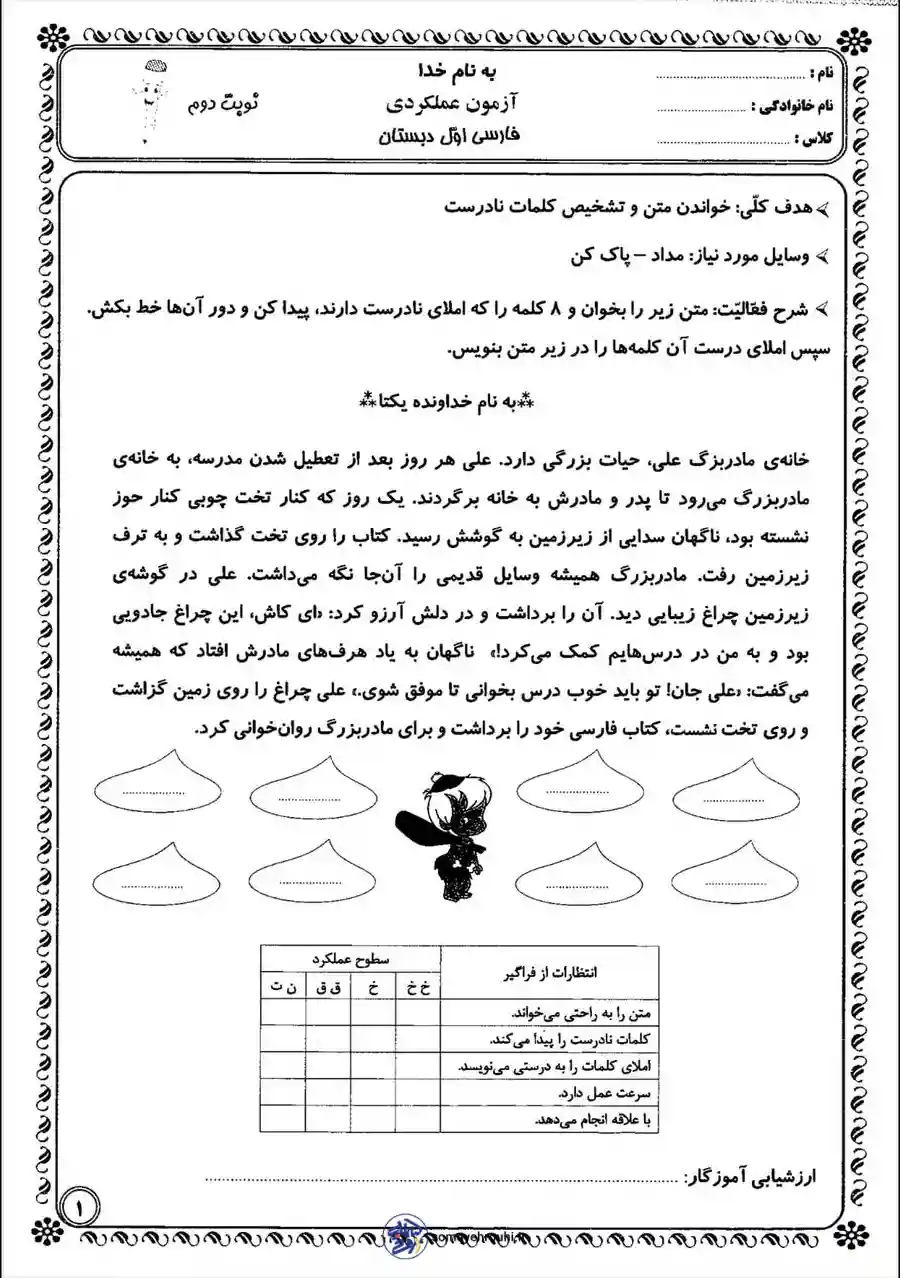 به نام خدا
آزمون عملکردی
فارسی اوّل دبستان
نوبت دوم
نام : ........................................
نام خانوادگی : .........................
کلاس : ....................................
هدف کلّی: خواندن متن و تشخیص کلمات نادرست
وسایل مورد نیاز: مداد – پاک کن
شرح فعّالیّت: متن زیر را بخوان و ۸ کلمه را که املای نادرست دارند، پیدا کن و دور آن‌ها خط بکش.
سپس املای درست آن کلمه‌ها را در زیر متن بنویس.
⁂به نام خداونده یکتا⁂
خانه‌ی مادربزگ علی، حیات بزرگی دارد. علی هر روز بعد از تعطیل شدن مدرسه، به خانه‌ی
مادربزرگ می‌رود تا پدر و مادرش به خانه برگردند. یک روز که کنار تخت چوبی کنار حوز
نشسته بود، ناگهان سدایی از زیرزمین به گوشش رسید. کتاب را روی تخت گذاشت و به ترف
زیرزمین رفت. مادربزرگ همیشه وسایل قدیمی را آن‌جا نگه می‌داشت. علی در گوشه‌ی
زیرزمین چراغ زیبایی دید. آن را برداشت و در دلش آرزو کرد: «ای کاش، این چراغ جادویی
بود و به من در درس‌هایم کمک می‌کرد!» ناگهان به یاد هرف‌های مادرش افتاد که همیشه
می‌گفت: «علی جان! تو باید خوب درس بخوانی تا موفق شوی.» علی چراغ را روی زمین گزاشت
و روی تخت نشست، کتاب فارسی خود را برداشت و برای مادربزرگ روان‌خوانی کرد.
انتظارات از فراگیر
سطوح عملکرد
خ خ
خ
ق ق
ن ت
متن را به راحتی می‌خواند.
کلمات نادرست را پیدا می‌کند.
املای کلمات را به درستی می‌نویسد.
سرعت عمل دارد.
با علاقه انجام می‌دهد.
ارزشیابی آموزگار: ........................................
۱